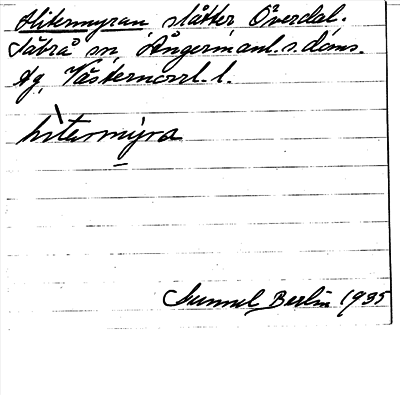 Hitermyran, slåtter, Överdal.
Säbrå sn, Ångermanl. s. doms.
dg, Västernorrl. l.
hìtermýra
Gunnul Berlin 1935